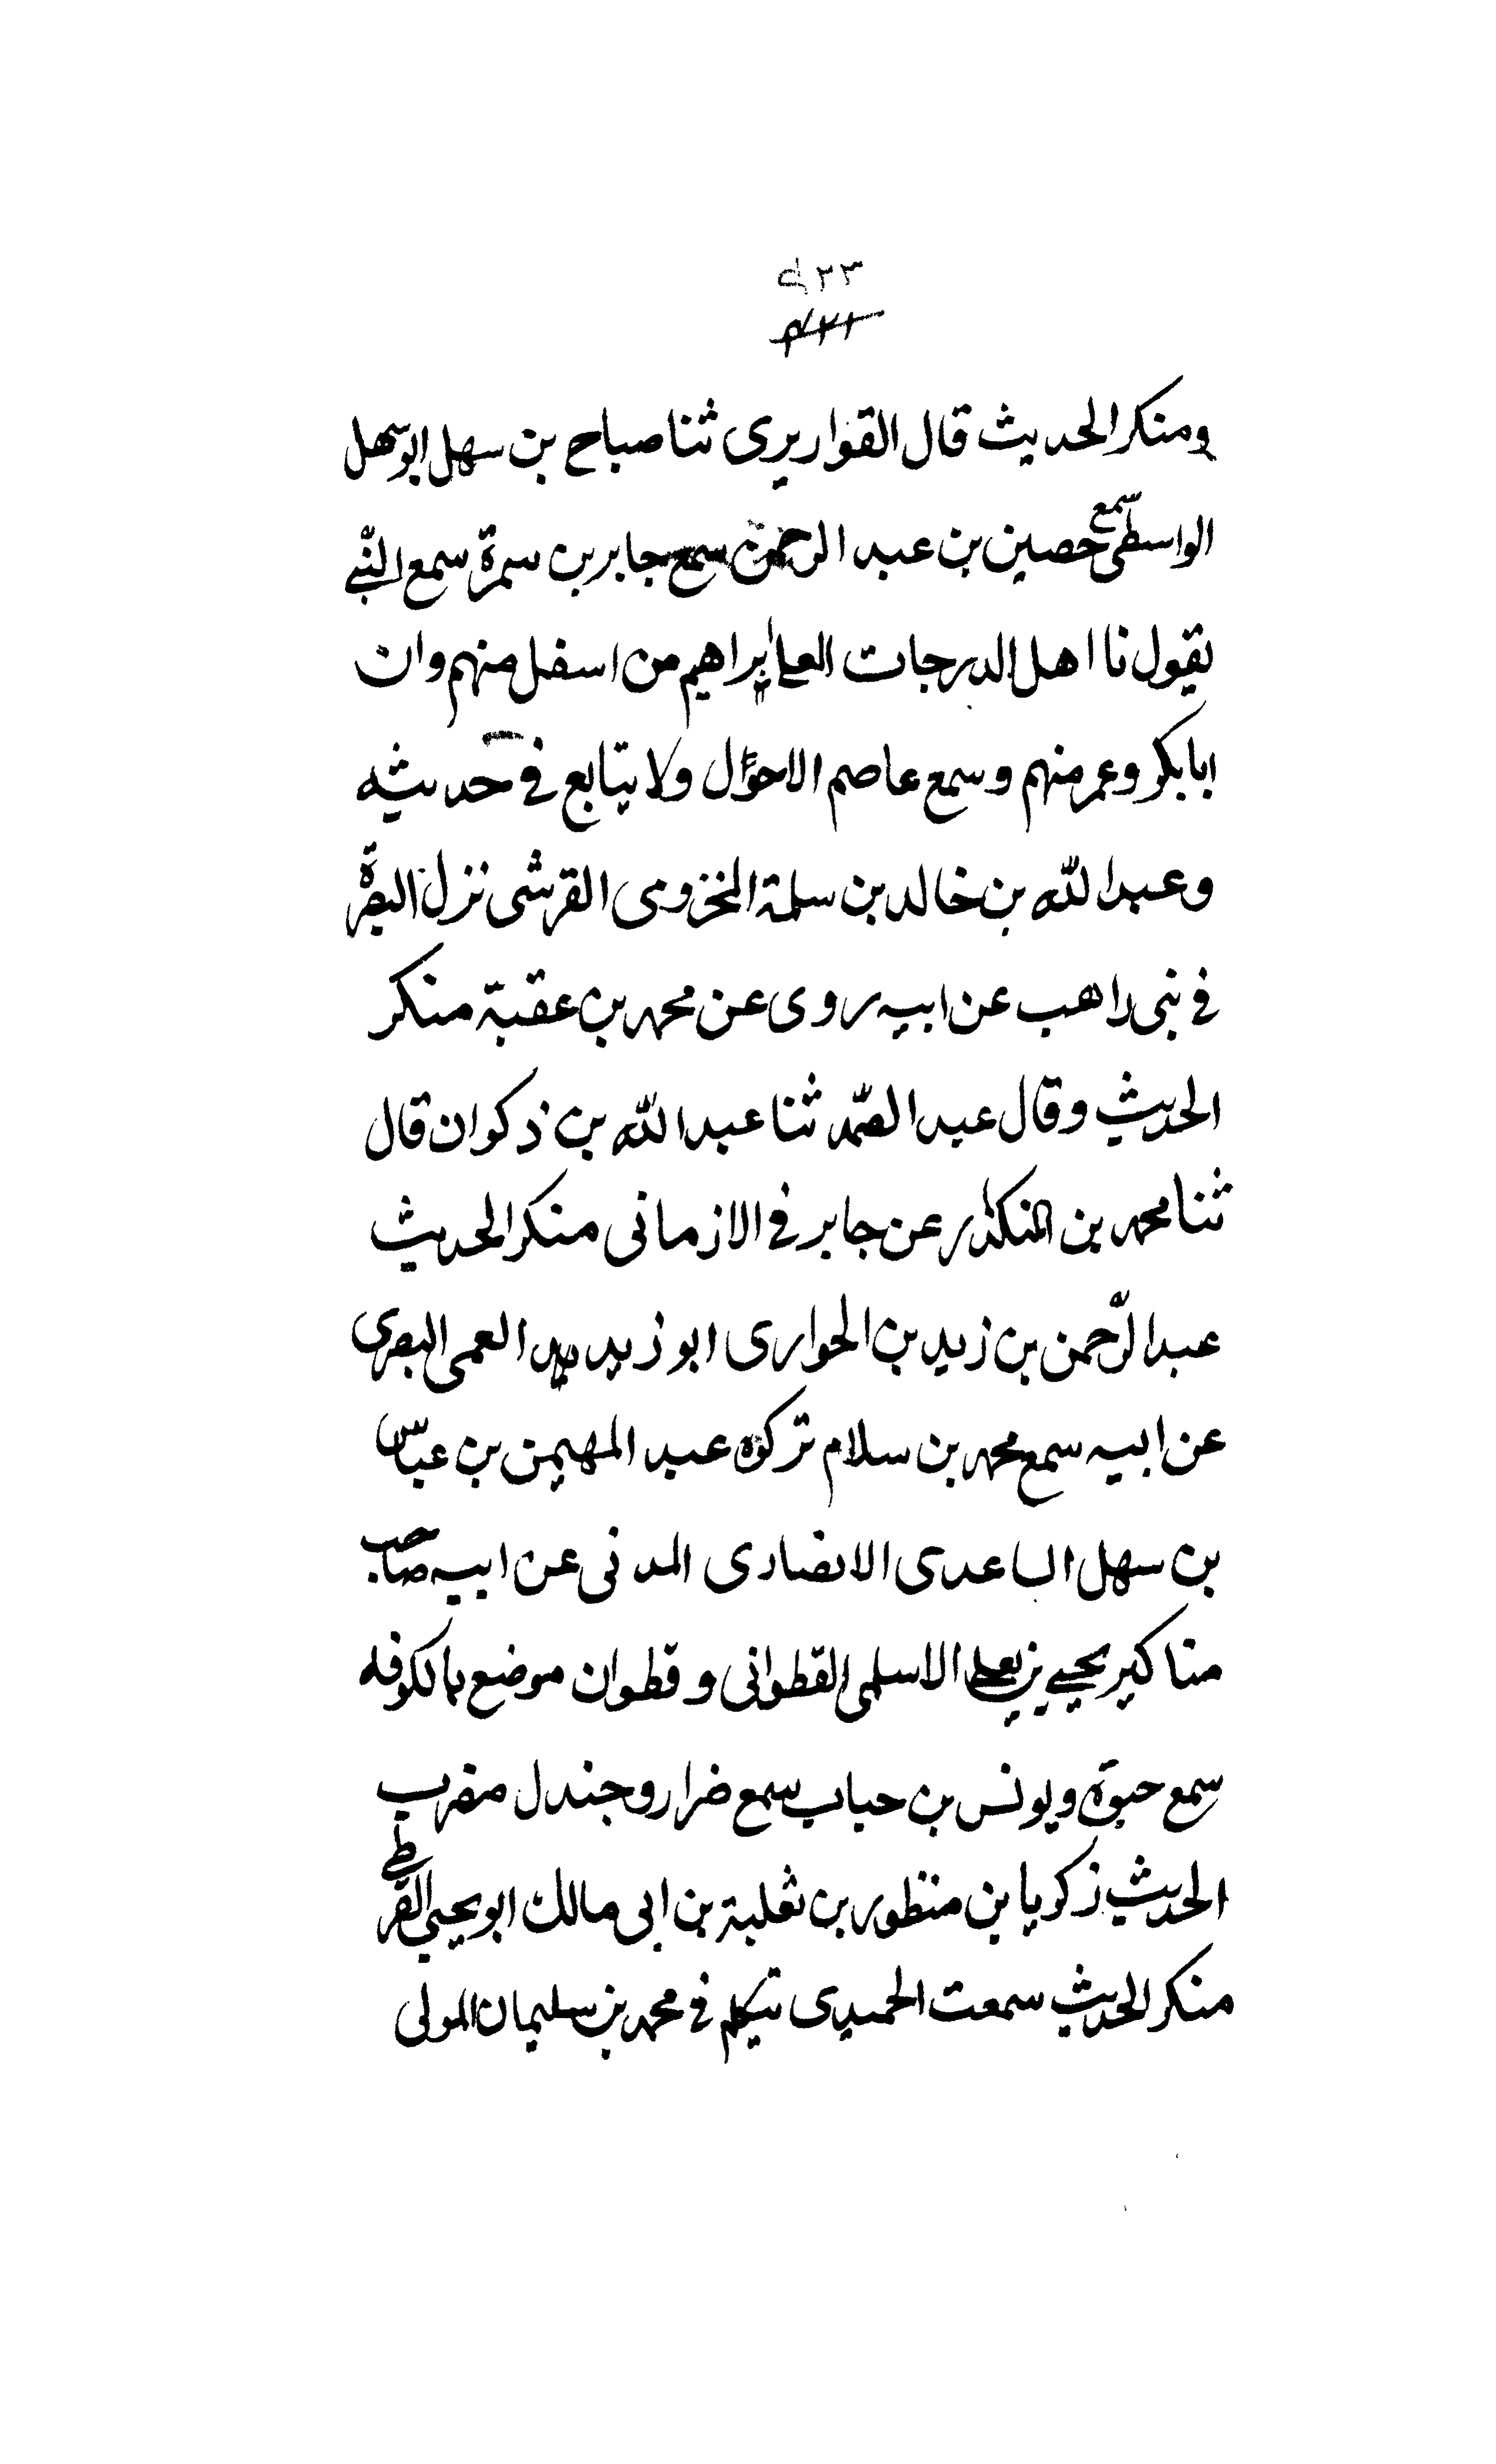 ومنكر الحديث قال القواريرى ثنا صباح بن سهل ابو سهل
الواسطى سمع حصين بن عبد الرحمن سمع جابر بن سمرة سمع النبى
يقول نا اهل الدرجات العلى يراهم من اسفل منهم وان
ابابكر وعمر منهم وسمع عاصم الاحول ولا يتابع فى حديثه
وعبد الله بن خالد بن سلمة المخزومى القرشى نزل البصرة
فى بنى راهب عن ابيه روى عن محمد بن عقبة منكر
الحديث وقال عبد الصمد ثنا عبد الله بن ذكوان قال
ثنا محمد بن المنكدر عن جابر فى الازمانى منكر الحديث
عبد الرحمن بن زيد بن الحوارى ابو زيد العمى البصرى
عن ابيه سمع محمد بن سلام تركوه عبد المهيمن بن عباس
بن سهل الساعدى الانصارى المدنى عن ابيه صاحب
مناكير يحيى بن يعلى الاسلمى القطوانى وقطوان موضع بالكوفه
سمع حيوة ويونس بن حباب سمع ضرار وجندل مضرب
الحديث زكريا بن منظور بن ثعلبة بن ابى مالك ابو يحيى القرظى
منكر الحديث سمعت الحميدى يتكلم فى محمد بن سليمان المولى